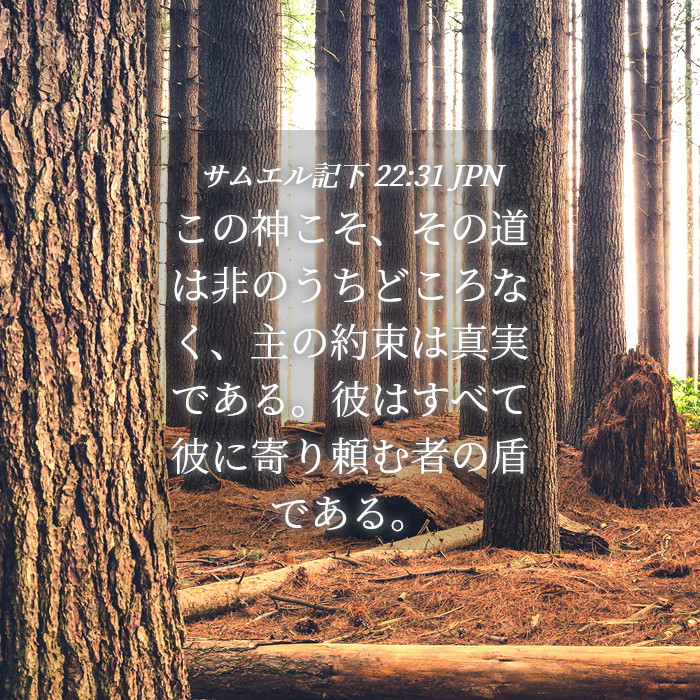 サムエル記下 22:31 JPN
この神こそ、その道
は非のうちどころな
く、主の約束は真実
である。彼はすべて
彼に寄り頼む者の盾
である。